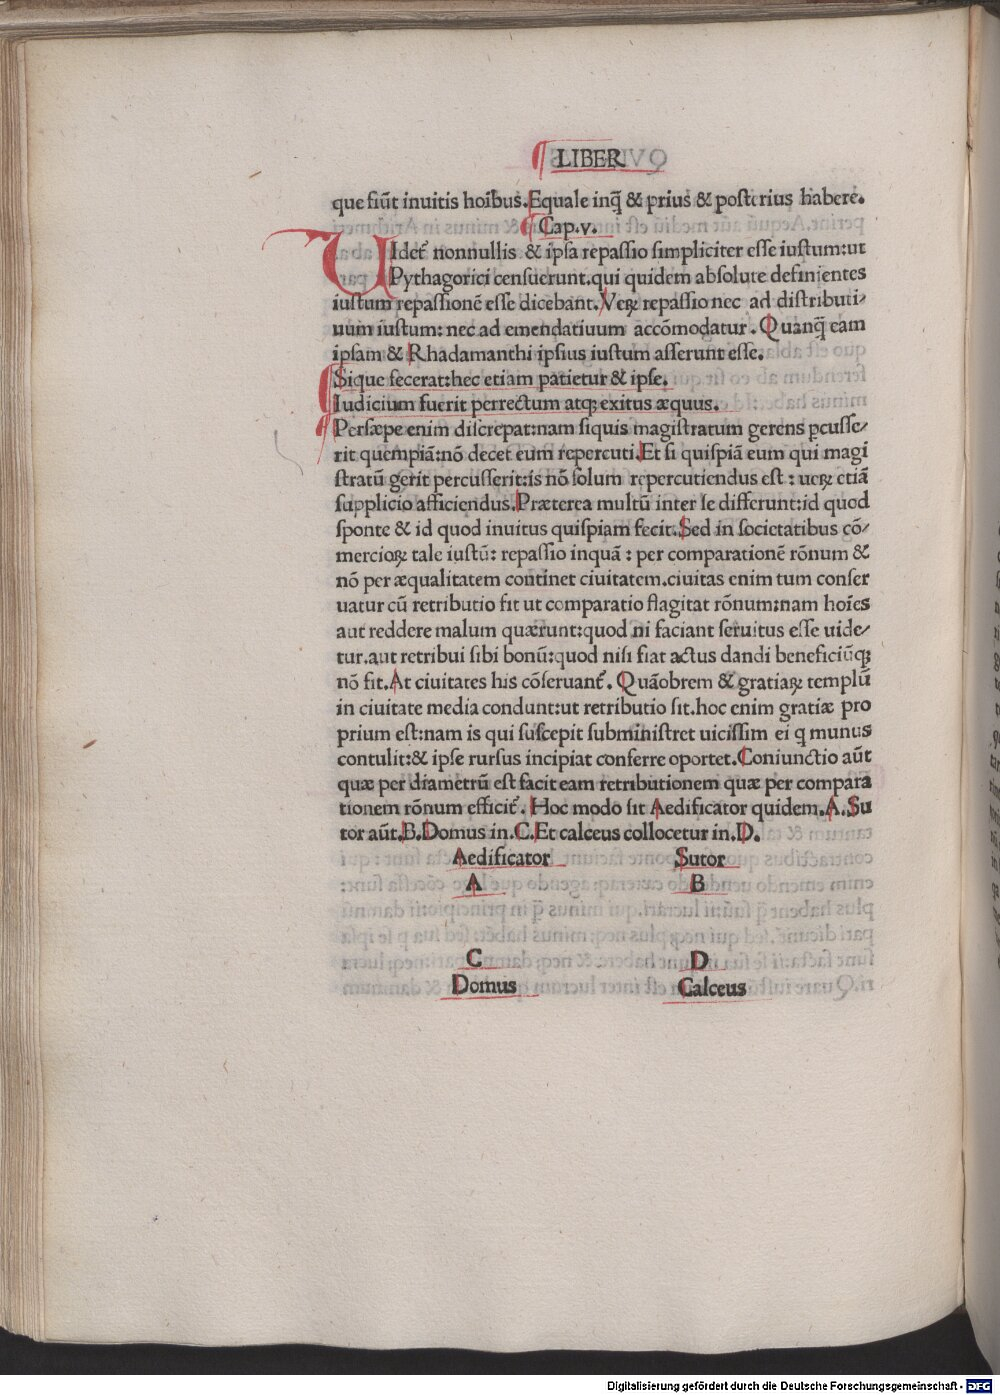 LIBER
que fiũt inuitis hoĩbus.Equale inq̃ & prius & posterius habere.
Cap.v.
VIdet᷑ nonnullis & ipsa repassio simpliciter esse iustum:ut
Pythagorici censuerunt.qui quidem absolute definientes
iustum repassionẽ esse dicebant.Veꝝ repassio nec ad distributi/
uum iustum: nec ad emendatiuum accõmodatur. Quanq̃ eam
ipsam & Rhadamanthi ipsius iustum asserunt esse.
Sique fecerat:hec etiam patietur & ipse.
Iudicium fuerit perrectum atqꝫ exitus æquus.
Persæpe enim discrepat:nam siquis magistratum gerens ꝑcusse/
rit quempiã:nõ decet eum repercuti.Et si quispiã eum qui magi
stratũ gerit percusserit:is nõ solum repercutiendus est : ueꝝ etiã
supplicio afficiendus.Præterea multũ inter se differunt:id quod
sponte & id quod inuitus quispiam fecit.Sed in societatibus cõ/
mercioꝝ tale iustũ: repassio inquã : per comparationẽ rõnum &
nõ per æqualitatem continet ciuitatem.ciuitas enim tum conser
uatur cũ retributio fit ut comparatio flagitat rõnum:nam hoĩes
aut reddere malum quærunt:quod ni faciant seruitus esse uide/
tur.aut retribui sibi bonũ:quod nisi fiat actus dandi beneficiũqꝫ
nõ fit.At ciuitates his cõseruant᷑. Quãobrem & gratiaꝝ templũ
in ciuitate media condunt:ut retributio sit.hoc enim gratiæ pro
prium est:nam is qui suscepit subministret uicissim ei q munus
contulit:& ipse rursus incipiat conferre oportet.Coniunctio aũt
quæ per diametrũ est facit eam retributionem quæ per compara
tionem rõnum efficit᷑. Hoc modo sit Aedificator quidem.A.Su
tor aũt.B.Domus in.C.Et calceus collocetur in.D.
Aedificator Sutor
A B
C D
Domus Calceus
Digitalisierung gefördert durch die Deutsche Forschungsgemeinschaft - DFG